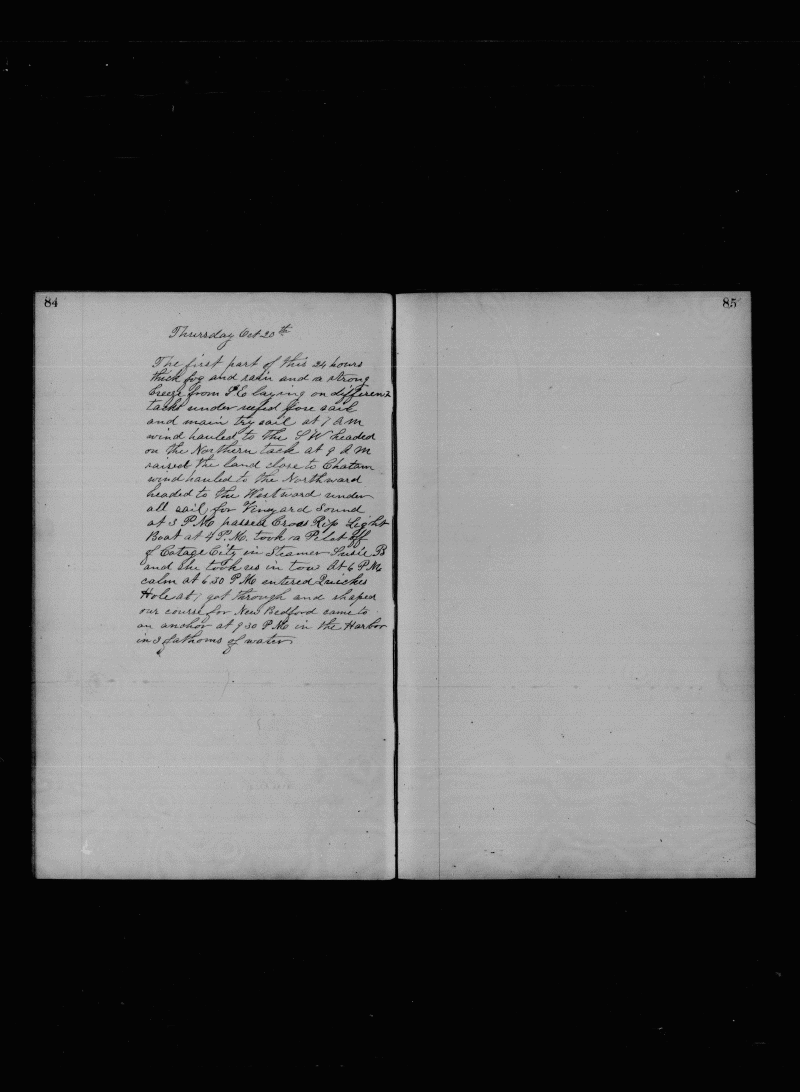 84
Thursday Oct 20th
The first part of this 24 hours
thick fog and rain and a strong
breeze from S E laying on different
tacks under reefed fore sail
and main try sail at 7 A M
wind hauled to the S W headed
on the Northern tack at 9 A M
raised the land close to Chatam
wind hauled to the Northward
headed to the Westward under
all sail for Vinyard Sound
at 3 P M passed Cross Rip Light
Boat at 4 P.M. took a Pilot off
of Cotage City in Steamer Susie B
and she took us in tow at 6 P M
calm at 6 30 P M entered Quickes
Hole at 7 got through and shaped
our course for New Bedford came to
an anchor at 9 30 P M in the Harbor
in 3 fathoms of water
85